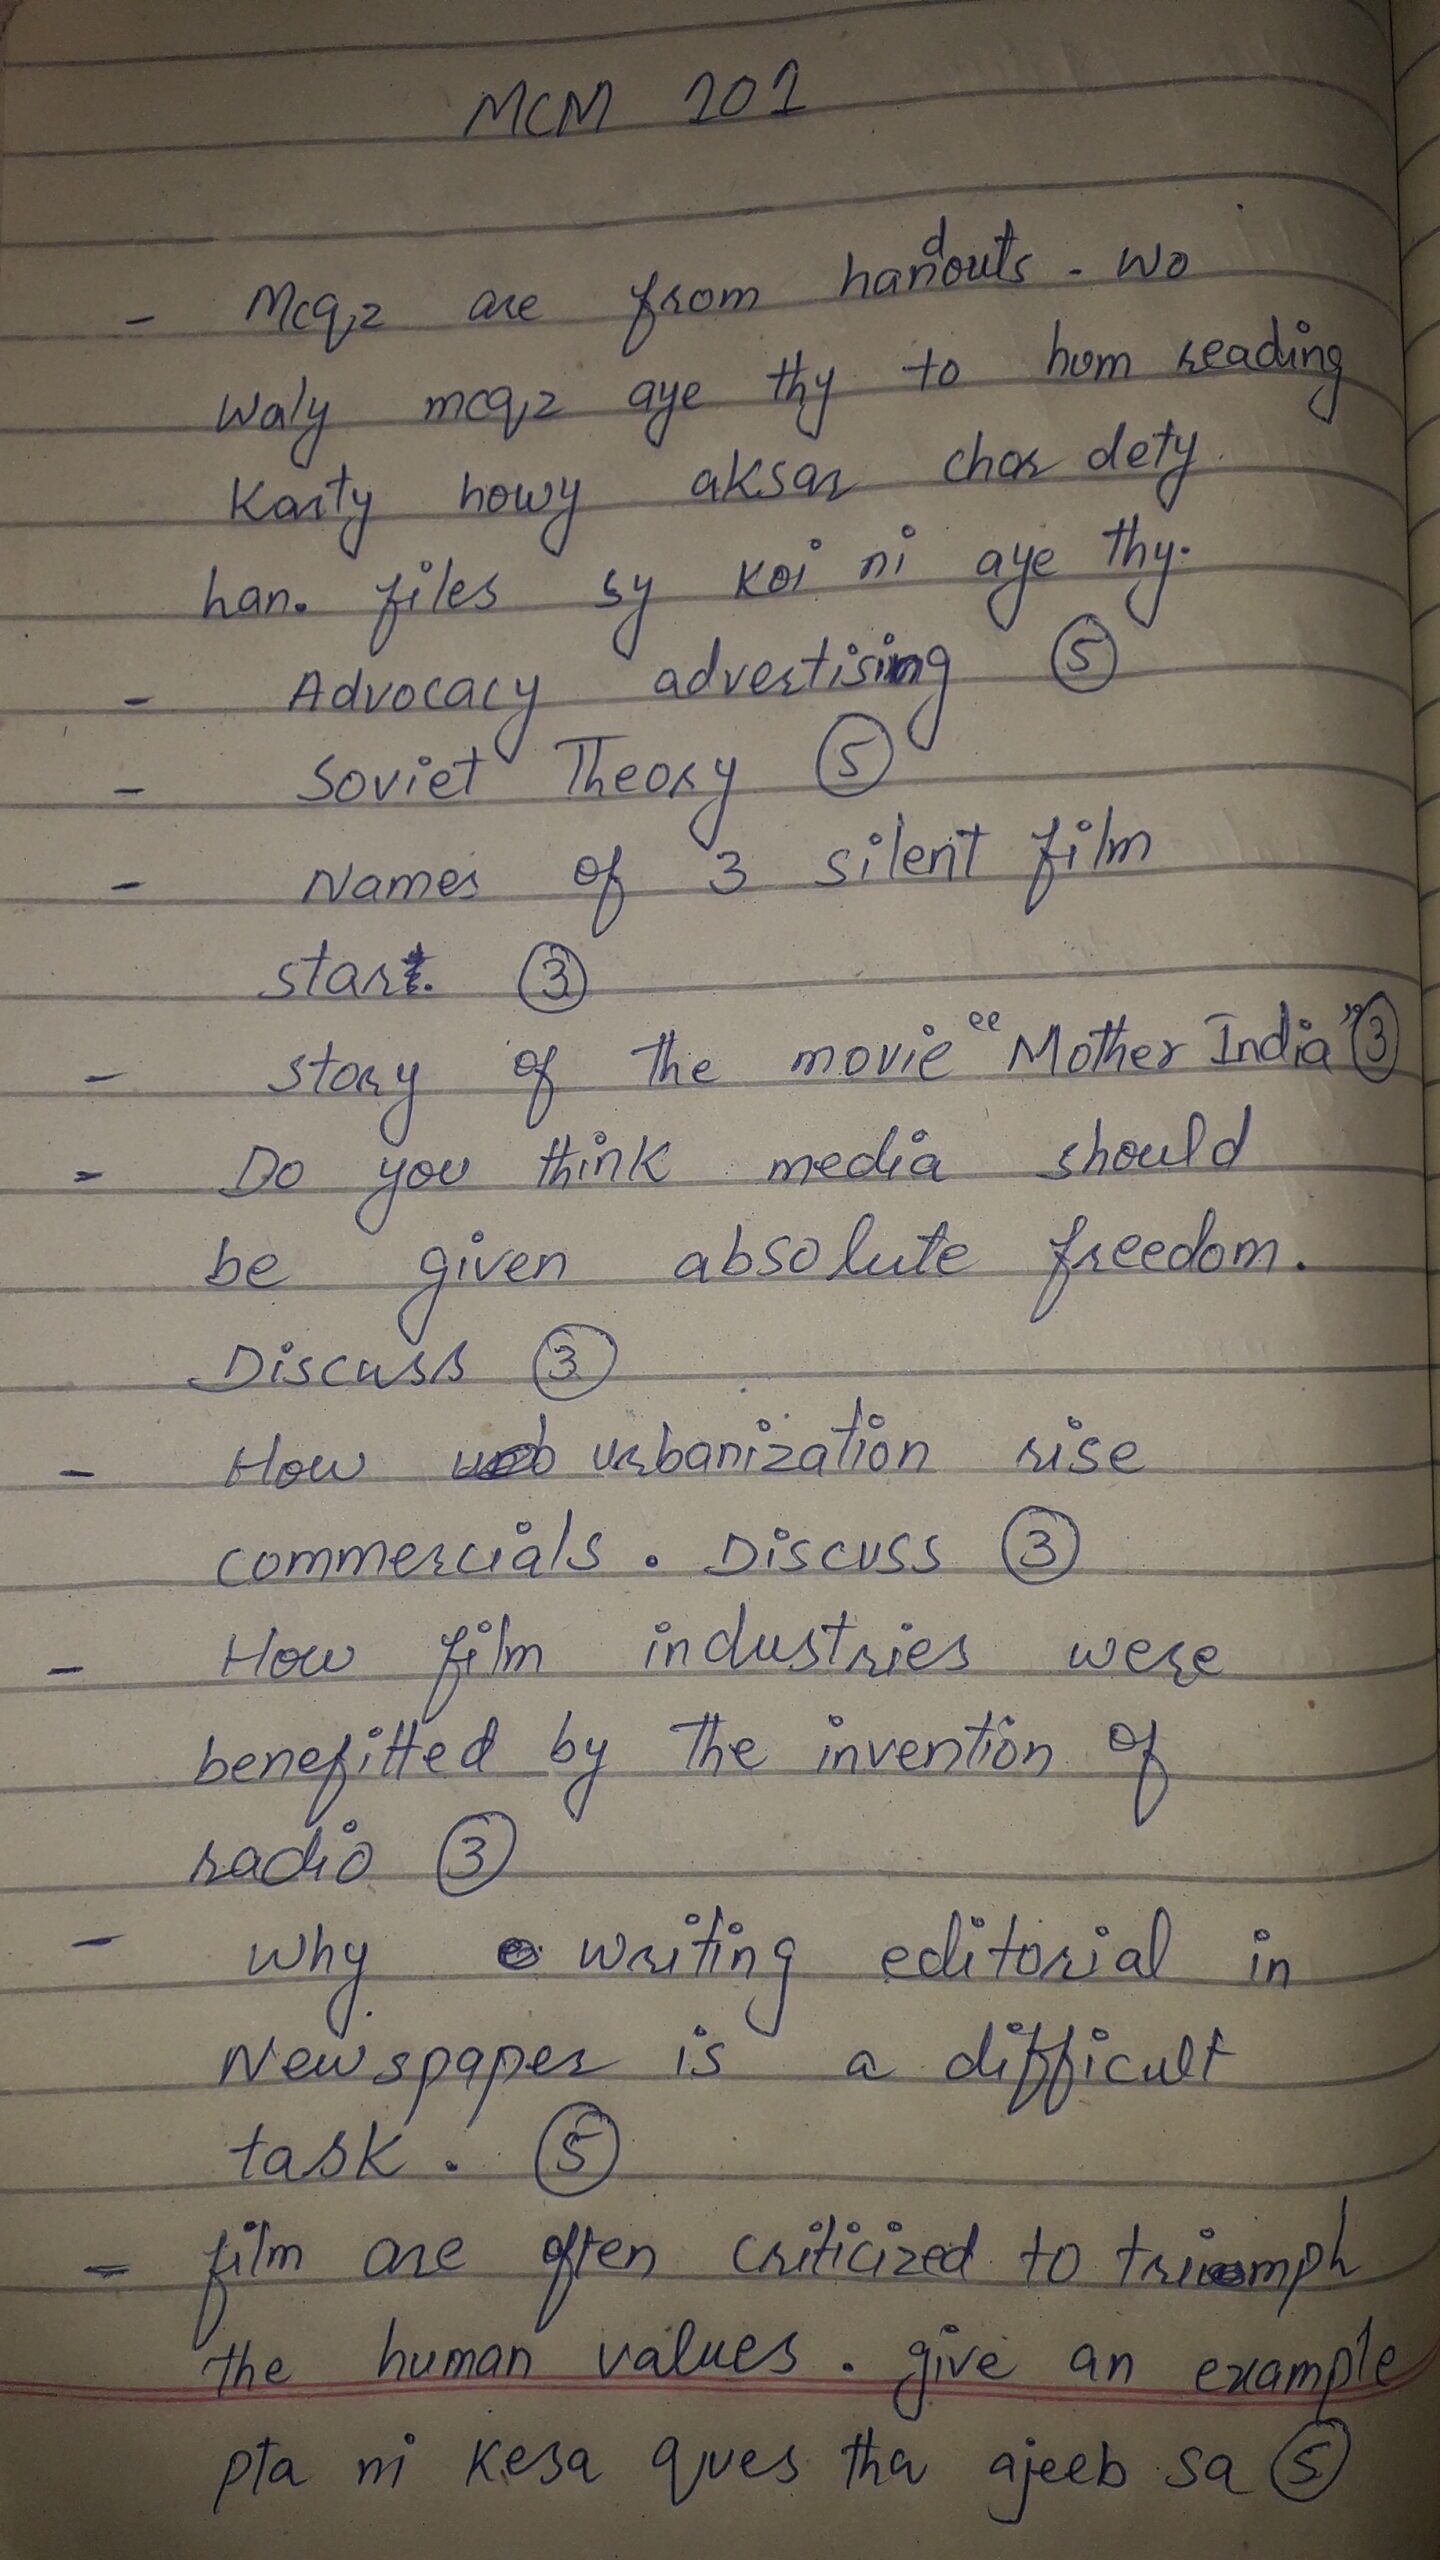 MCM 101
- Mcqz are from handouts. wo
waly mcqz aye thy to hum reading
Karty howy aksar chor dety
han. files sy koi ni aye thy.
- Advocacy advertising 5
- Soviet Theory 5
- Names of 3 silent film
star. 3
- story of the movie "Mother India" 3
- Do you think media should
be given absolute freedom.
Discuss 3
- How urbanization rise
commercials. Discuss 3
- How film industries were
benefitted by the invention of
radio 3
- why writing editorial in
Newspaper is a difficult
task. 5
- film are often criticized to triumph
the human values. give an example
pta ni kesa ques tha ajeeb sa 5